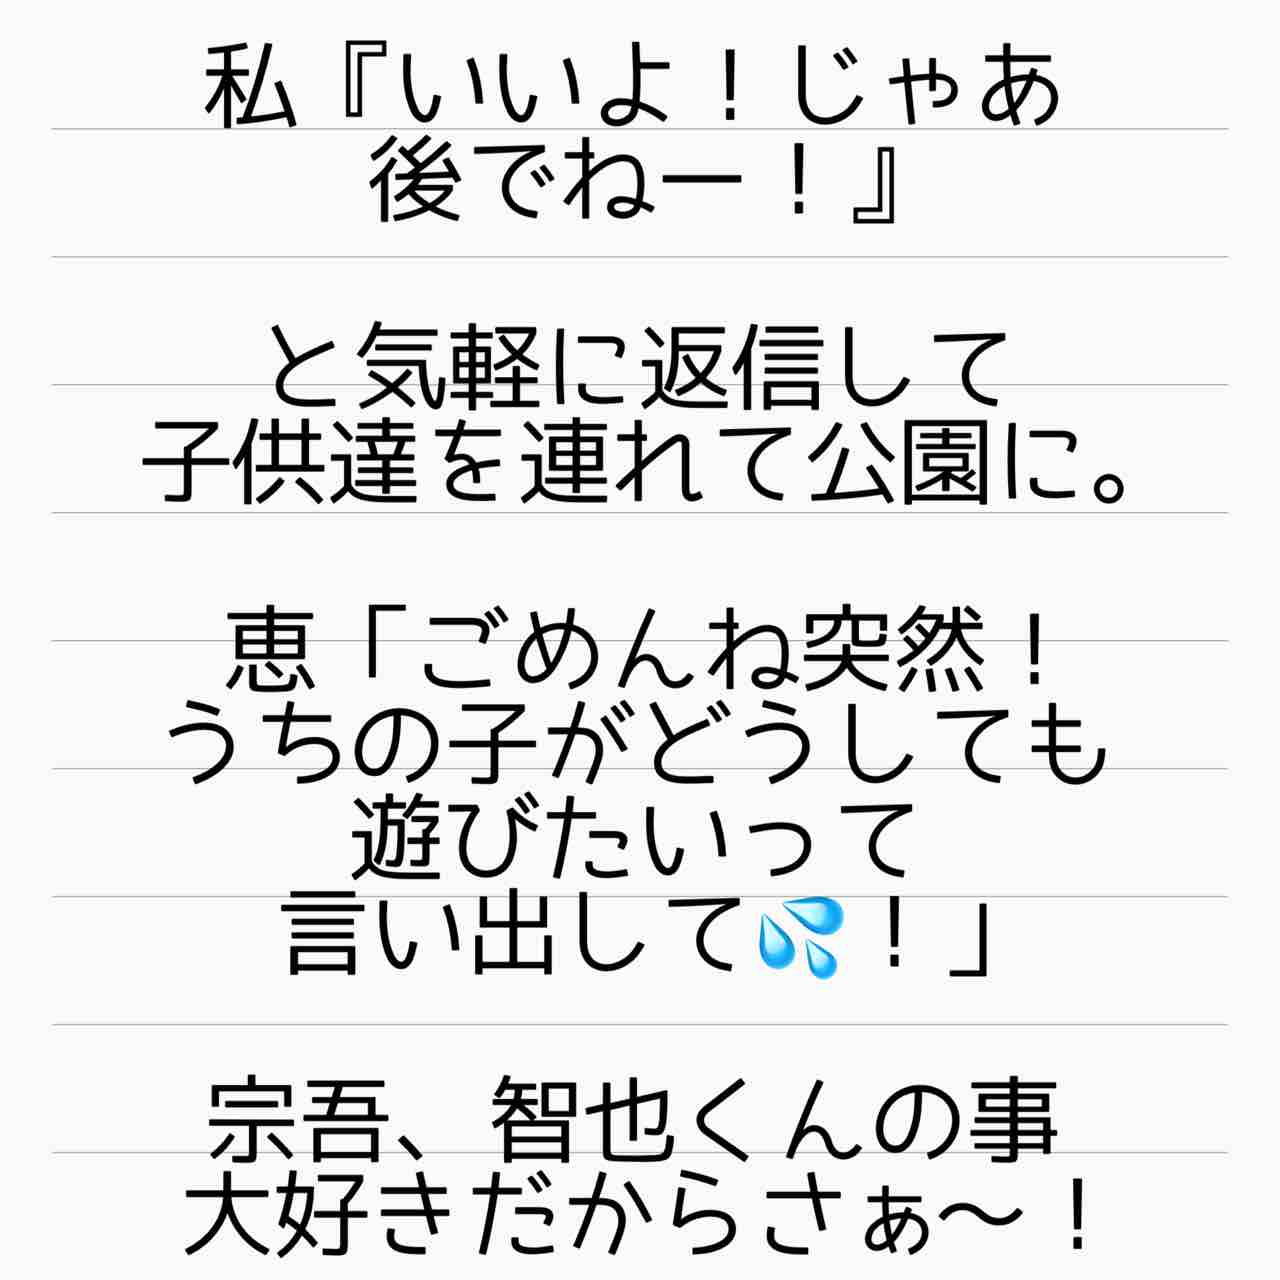 私『いいよ！じゃあ
後でねー！』
と気軽に返信して
子供達を連れて公園に。
恵「ごめんね突然！
うちの子がどうしても
遊びたいって
言い出して💦！」
宗吾、智也くんの事
大好きだからさぁ〜！